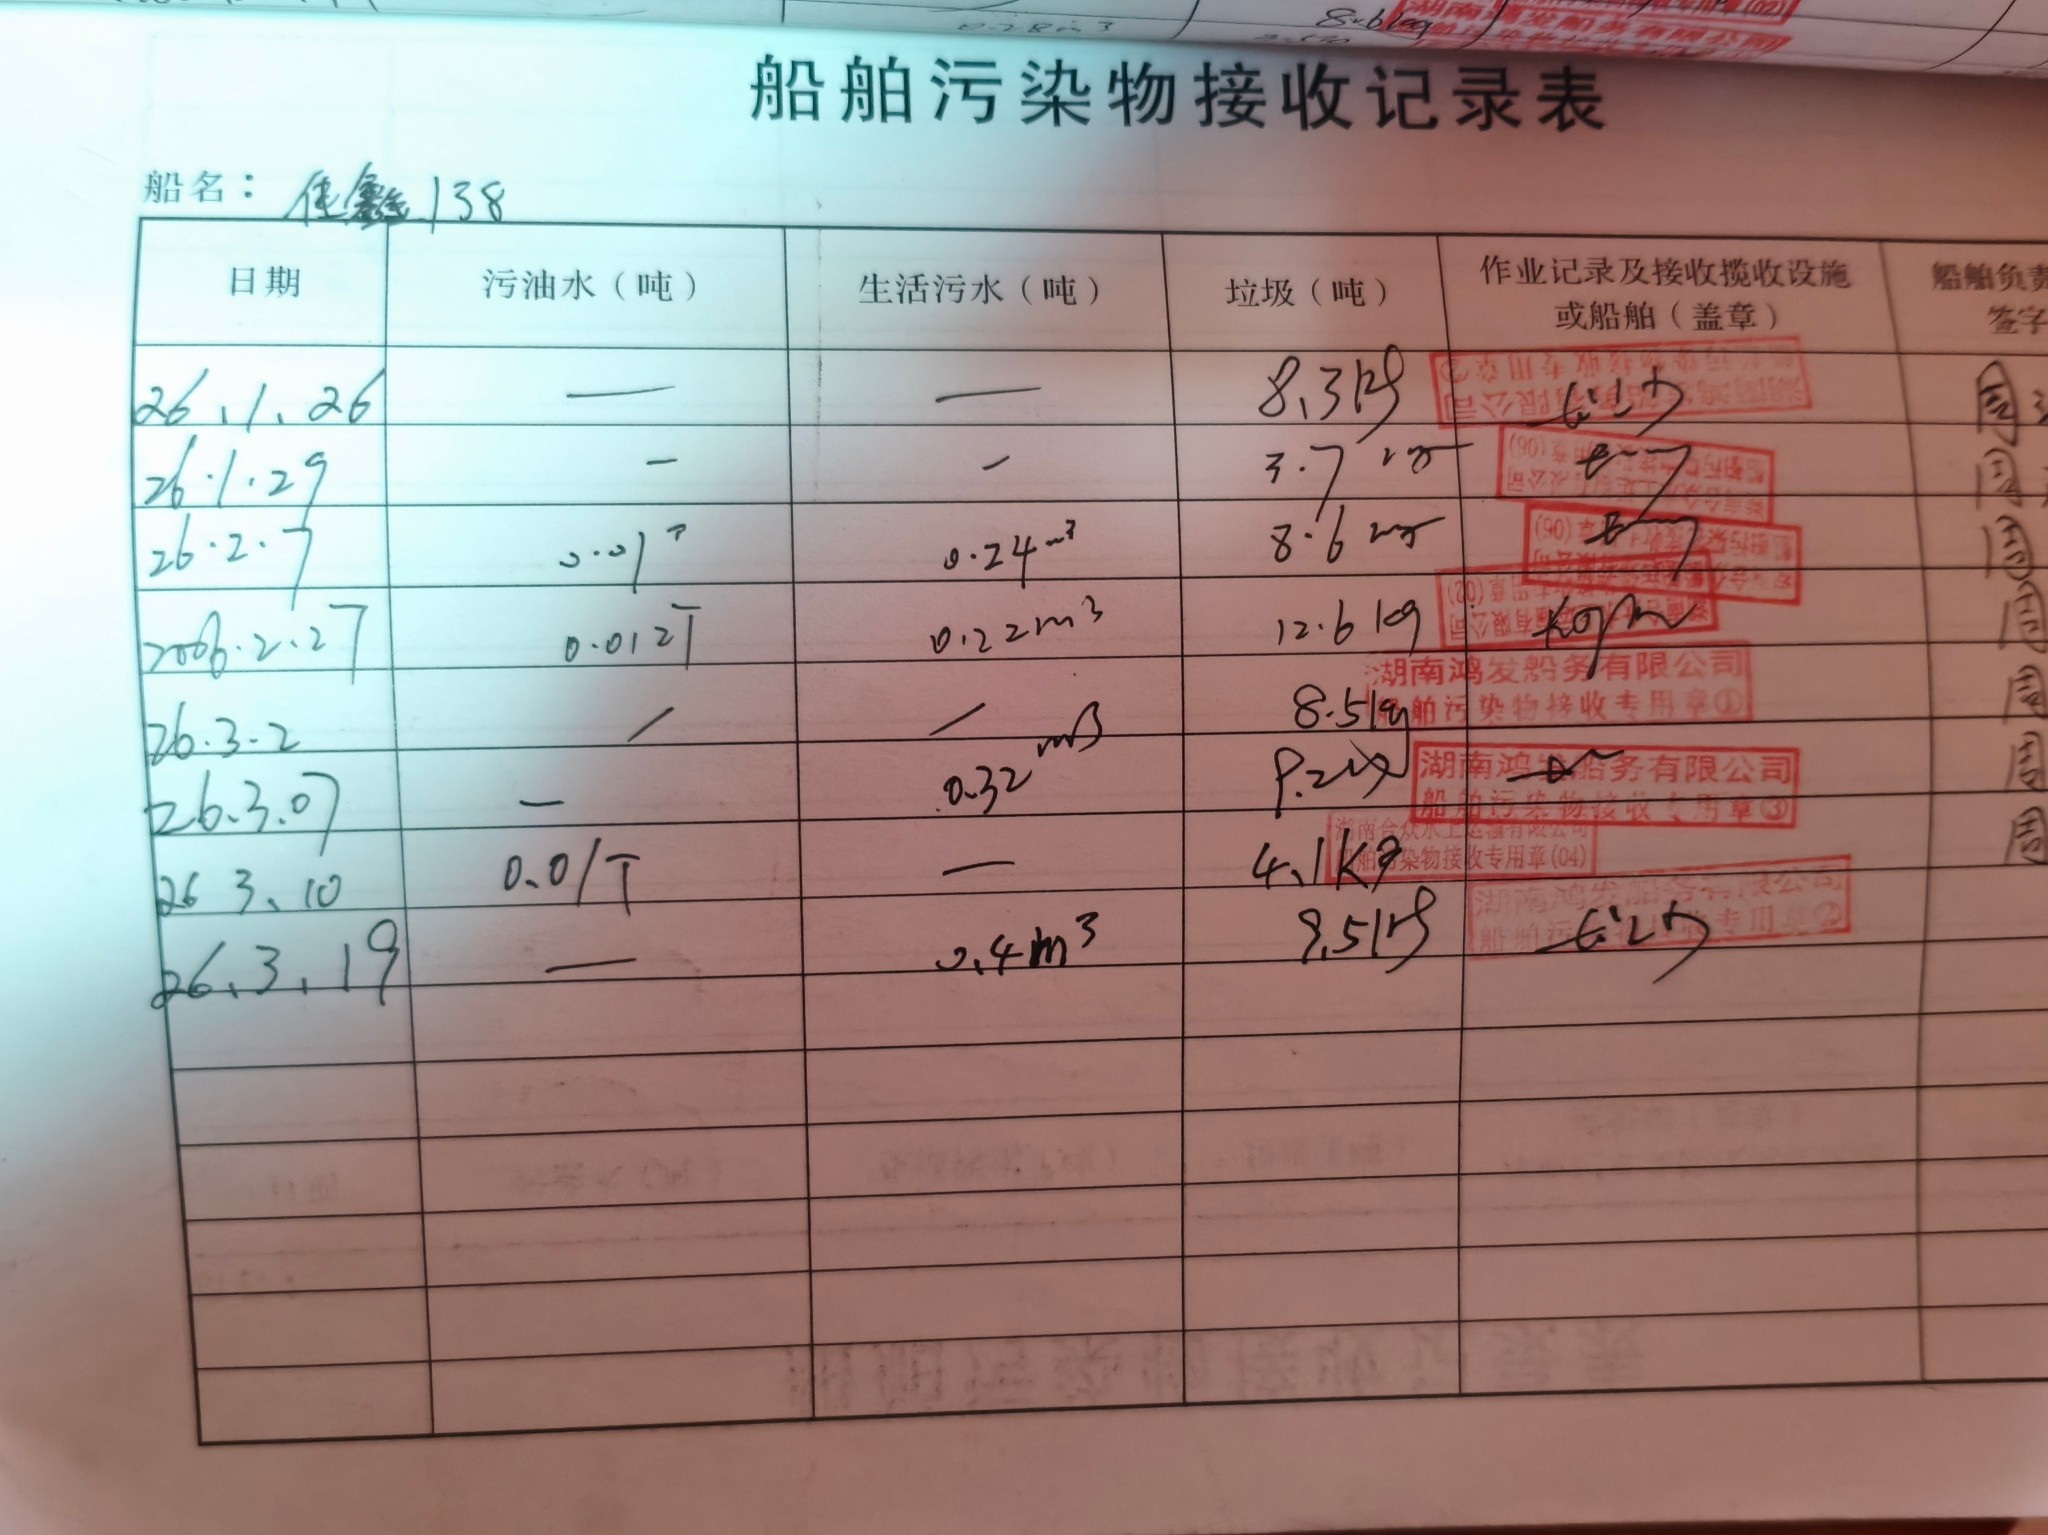 0.28m³ 8.6kg
湖南鸿发船务有限公司
船舶污染物接收记录表
船名： 佳鑫138
日期 污油水（吨） 生活污水（吨） 垃圾（吨） 作业记录及接收揽收设施或船舶（盖章） 船舶负责 签字
26.1.26 — — 8.3kg 周
26.1.29 — — 3.7kg 周
26.2.7 0.01T 0.24m³ 8.6kg 周
2006.2.27 0.012T 0.22m³ 12.6kg 周
26.3.2 / / 8.5kg 湖南鸿发船务有限公司 船舶污染物接收专用章① 周
26.3.07 — 0.32m3 9.2kg 湖南鸿发船务有限公司 船舶污染物接收专用章③ 周
26 3.10 0.01T — 4.1Kg 湖南合众水上运输有限公司 船舶污染物接收专用章(04) 周
26.3.19 — 0.4m³ 9.5kg 湖南鸿发船务有限公司 船舶污染物接收专用章②